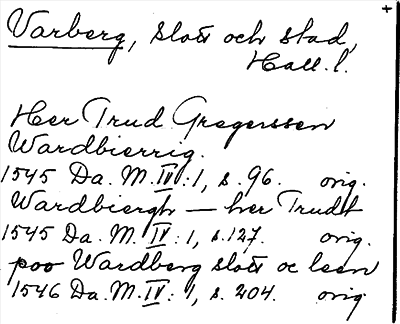 Varberg, slott och stad,
Hall. l.
Her Trud Gregerssen
Wardbierrig.
1545 Da. M. IV: 1, s. 96. orig.
Wardbiergh — her Trudt
1545 Da. M. IV: 1, s. 127. orig.
poo Wardberg slott oc leen
1546 Da. M. IV: 1, s. 204. orig